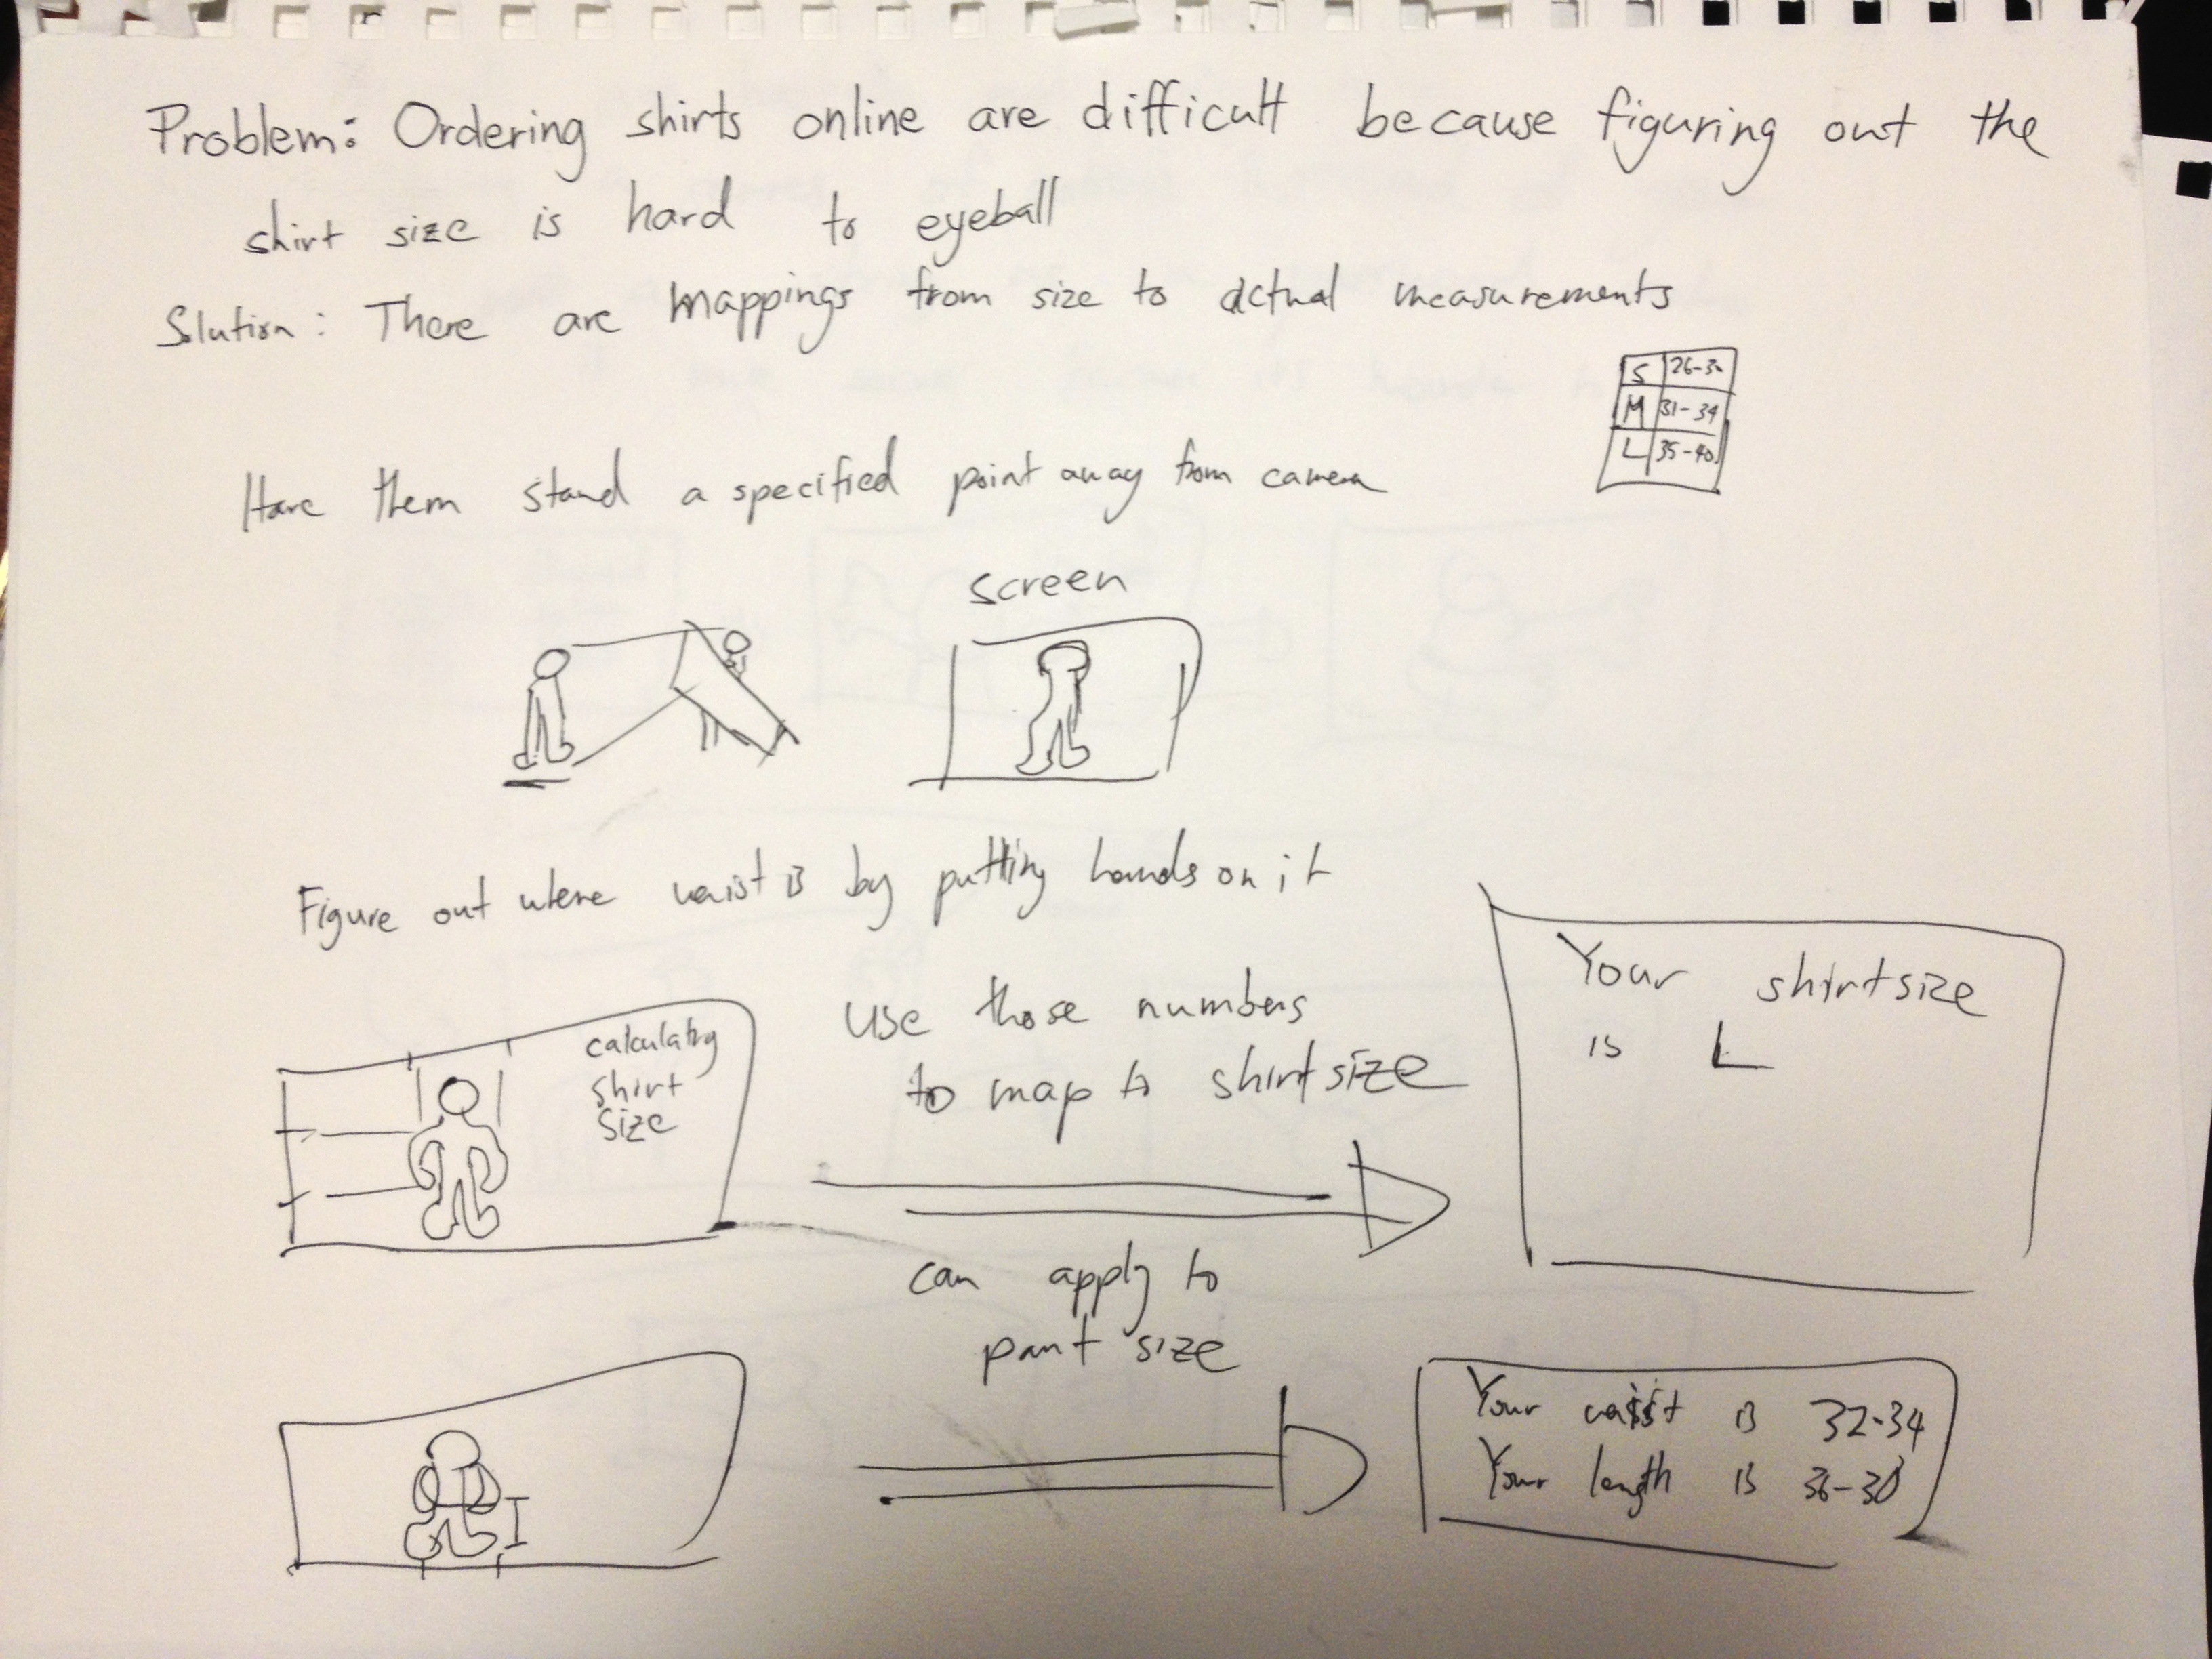 Problem: Ordering shirts online are difficult because figuring out the
shirt size is hard to eyeball
Slution: There are mappings from size to actual measurements
S 26-30
M 31-34
L 35-40
Have them stand a specified point away from camera
screen
Figure out where waist is by putting hands on it
calculating
shirt
size
use those numbers
to map to shirt size
Your shirt size
is L
can apply to
pant size
Your waist is 32-34
Your length is 36-30